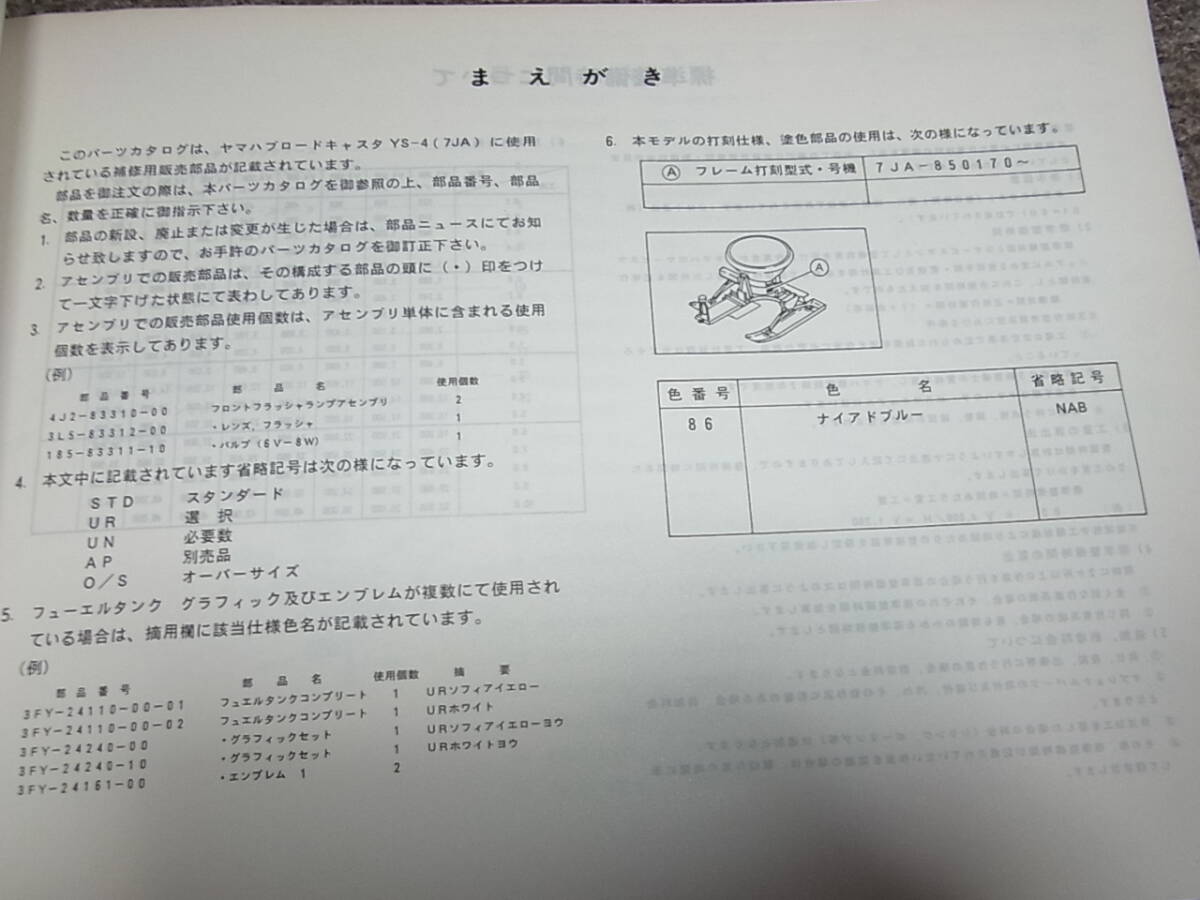 まえがき
このパーツカタログは、ヤマハブロードキャスタ YS-4(7JA)に使用
されている補修用販売部品が記載されています。
部品を御注文の際は、本パーツカタログを御参照の上、部品番号、部品
名、数量を正確に御指示下さい。
1. 部品の新設、廃止または変更が生じた場合は、部品ニュースにてお知
らせ致しますので、お手許のパーツカタログを御訂正下さい。
2. アセンブリでの販売部品は、その構成する部品の頭に(・)印をつけ
て一文字下げた状態にて表わしてあります。
3. アセンブリでの販売部品使用個数は、アセンブリ単体に含まれる使用
個数を表示してあります。
(例)
部品番号 部品名 使用個数
4J2-83310-00 フロントフラッシャランプアセンブリ 2
3L5-83312-00 ・レンズ, フラッシャ 1
185-83311-10 ・バルブ(6V-8W) 1
4. 本文中に記載されています省略記号は次の様になっています。
STD スタンダード
UR 選択
UN 必要数
AP 別売品
O/S オーバーサイズ
5. フューエルタンク グラフィック及びエンブレムが複数にて使用され
ている場合は、摘用欄に該当仕様色名が記載されています。
(例)
部品番号 部品名 使用個数 摘要
3FY-24110-00-01 フュエルタンクコンプリート 1 URソフィアイエロー
3FY-24110-00-02 フュエルタンクコンプリート 1 URホワイト
3FY-24240-00 ・グラフィックセット 1 URソフィアイエローヨウ
3FY-24240-10 ・グラフィックセット 1 URホワイトヨウ
3FY-24161-00 ・エンブレム 1 2
6. 本モデルの打刻仕様、塗色部品の使用は、次の様になっています。
Ⓐ フレーム打刻型式・号機 7JA-850170~
Ⓐ
色番号 色名 省略記号
86 ナイアドブルー NAB